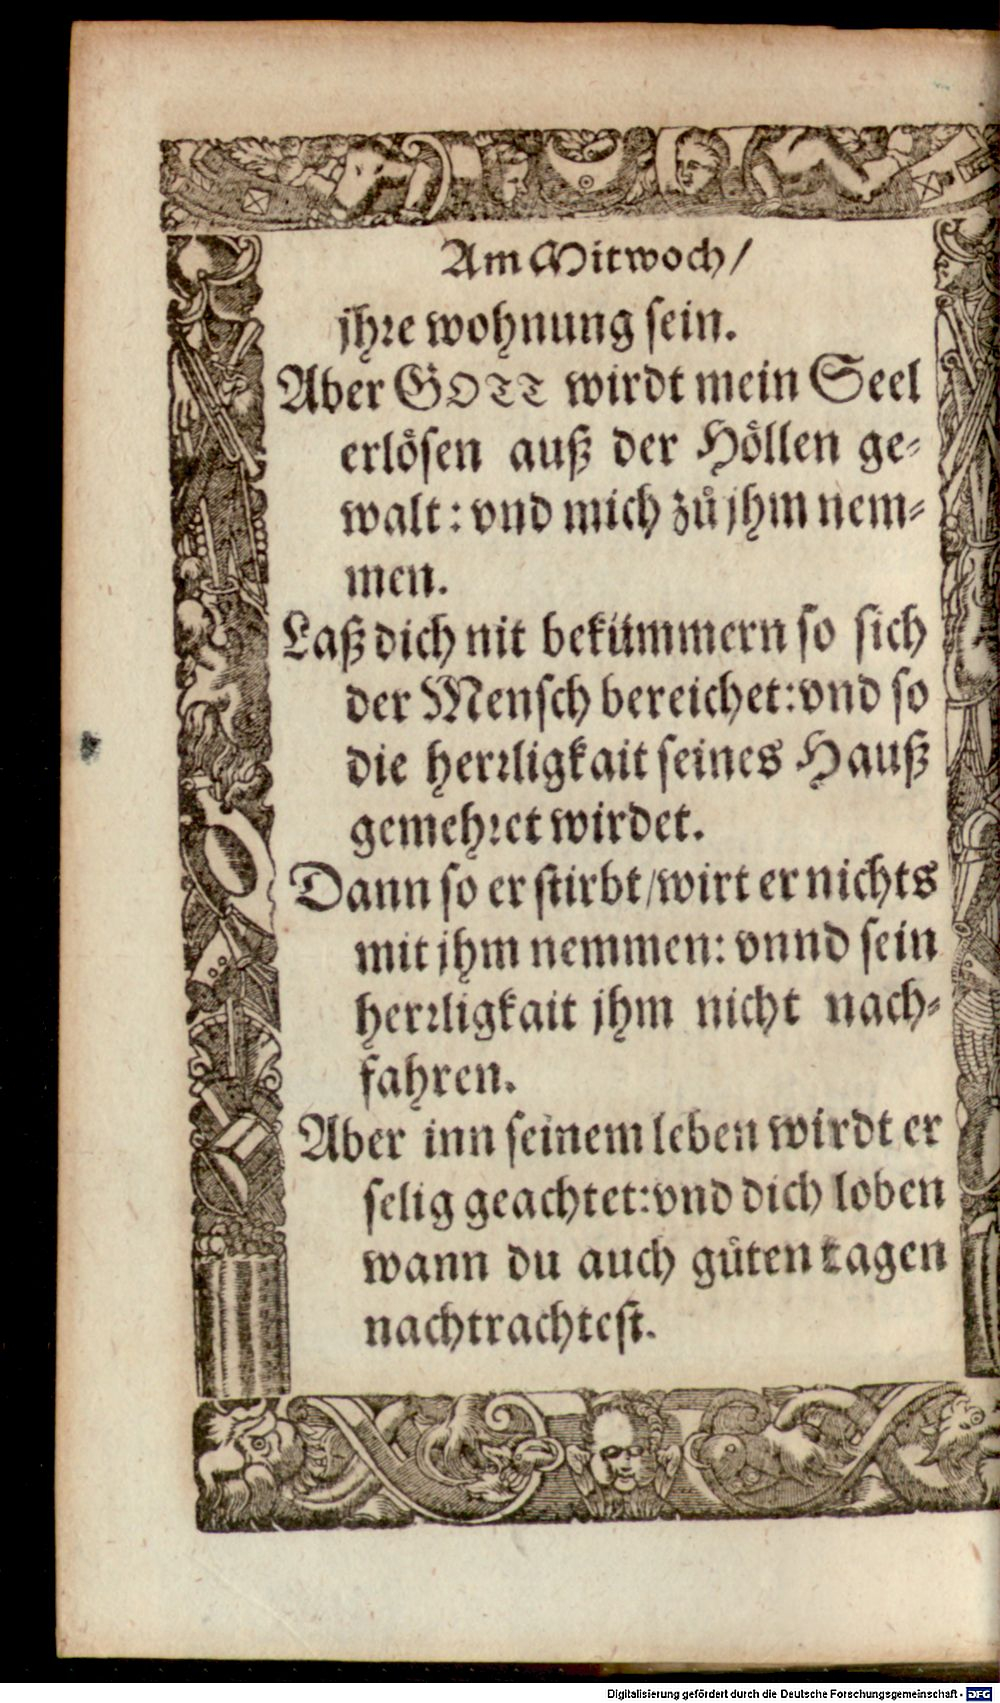 Am Mitwoch/
jhre wohnung sein.
Aber GOTT wirdt mein Seel
erlösen auß der Höllen ge-
walt: vnd mich zů jhm nem-
men.
Laß dich nit bekümmern so sich
der Mensch bereichet: vnd so
die herrligkait seines Hauß
gemehret wirdet.
Dann so er stirbt/wirt er nichts
mit jhm nemmen: vnnd sein
herrligkait jhm nicht nach-
fahren.
Aber inn seinem leben wirdt er
selig geachtet: vnd dich loben
wann du auch gůten tagen
nachtrachtest.
Digitalisierung gefördert durch die Deutsche Forschungsgemeinschaft - DFG